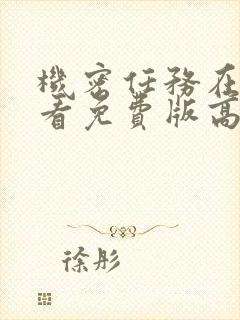 機密任務在
看免費版高
徐彤